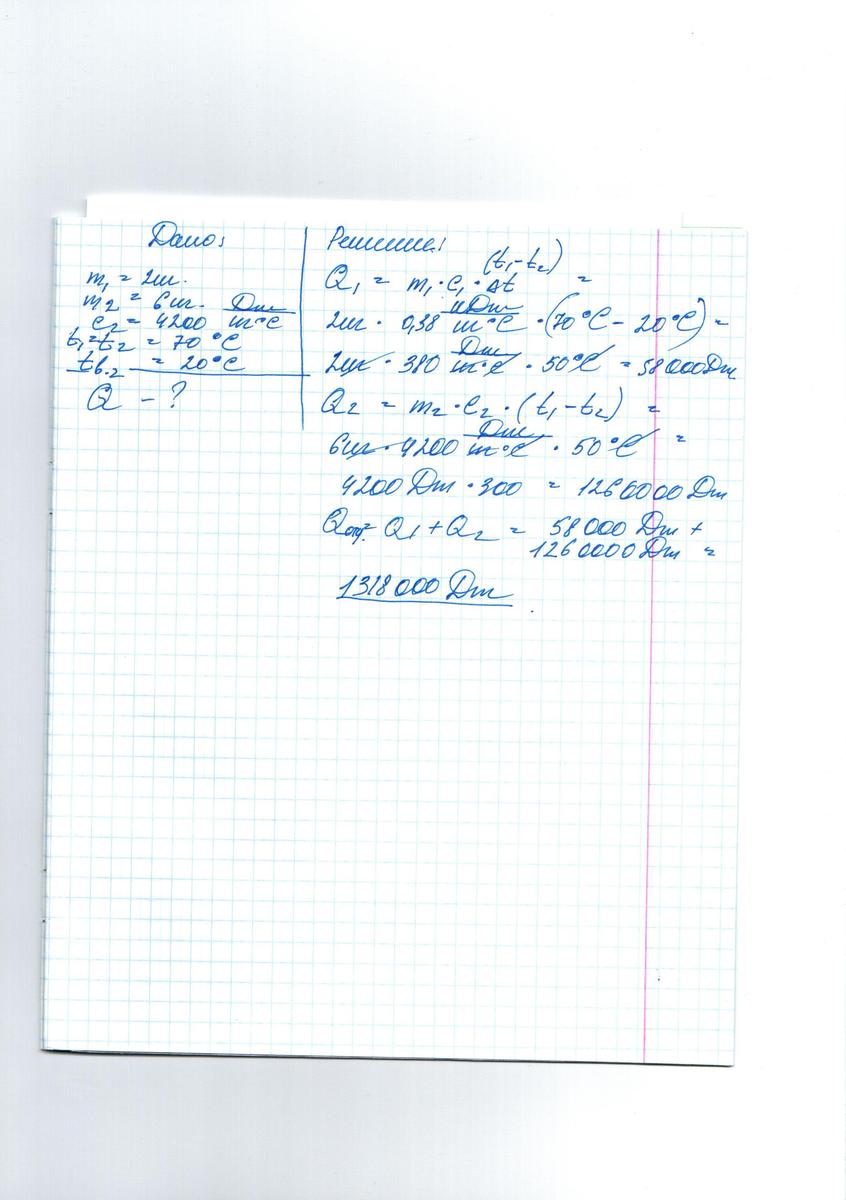 Дано:
m₁ = 2кг.
m₂ = 6кг.
c₂ = 4200 Дж/кг°C
t₁=t₂ = 70°C
tв.2 = 20°C
Q - ?
Решение:
(t₁-t₂)
Q₁ = m₁·c₁·Δt =
2кг · 0,38 кДж/кг°C · (70°C - 20°C) =
2кг · 380 Дж/кг·°C · 50°C = 58000Дж
Q₂ = m₂·c₂·(t₁-t₂) =
6кг·4200 Дж/кг·°C · 50°C =
4200 Дж · 300 = 1260000 Дж
Qотд= Q₁ + Q₂ = 58000 Дж +
1260000 Дж =
1318000 Дж